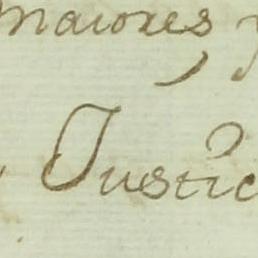 maiores,
Justic